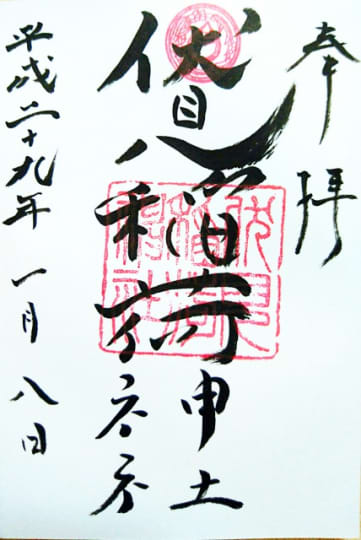 奉拝
伏見稲荷神社
平成二十九年一月八日